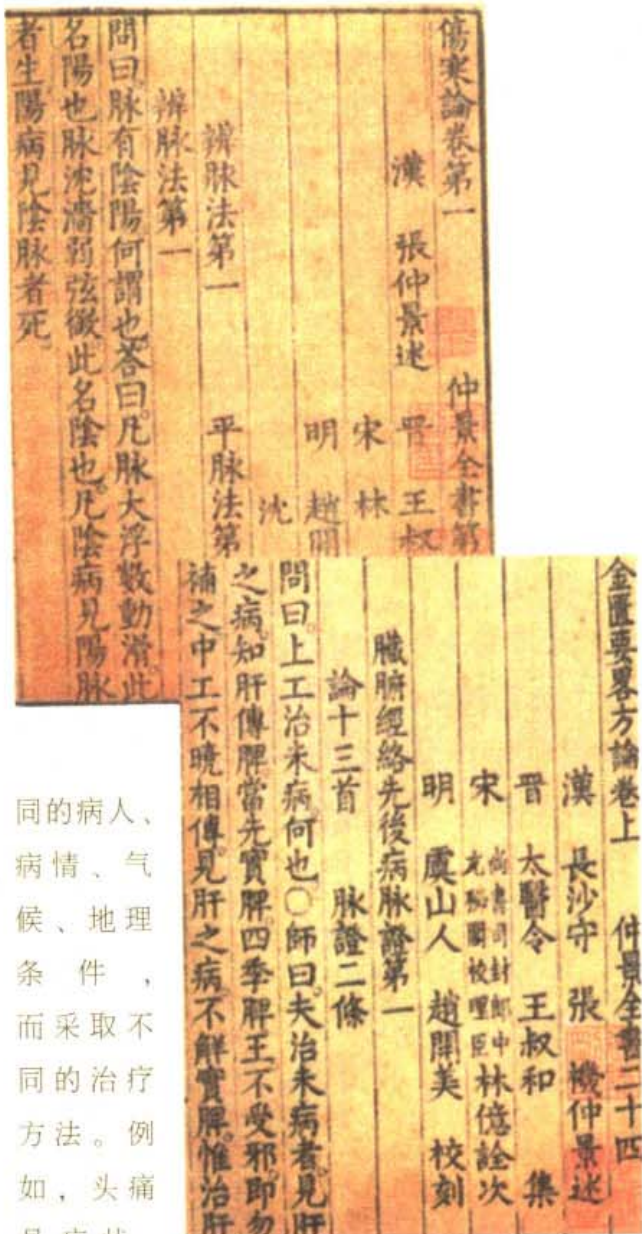 傷寒論卷第一 仲景全書第
漢 張仲景述
晋 王叔
宋 林
明 趙開
沈
辨脉法第一 平脉法第
辨脉法第一
問曰脉有陰陽何謂也答曰凡脉大浮數動滑此
名陽也脉沈濇弱弦微此名陰也凡陰病見陽脉
者生陽病見陰脉者死
金匱要畧方論卷上 仲景全書二十四
漢 長沙守 張 機仲景述
晉 太醫令 王叔和 集
宋 尚書司封郎中充秘閣校理臣 林億詮次
明 虞山人 趙開美 校刻
臟腑經絡先後病脉證第一
論十三首 脉證二條
問曰上工治未病何也○師曰夫治未病者見肝
之病知肝傳脾當先實脾四季脾王不受邪即勿
補之中工不曉相傳見肝之病不解實脾惟治肝
同的病人、
病情、气
候、地理
条件，
而采取不
同的治疗
方法。例
如，头痛